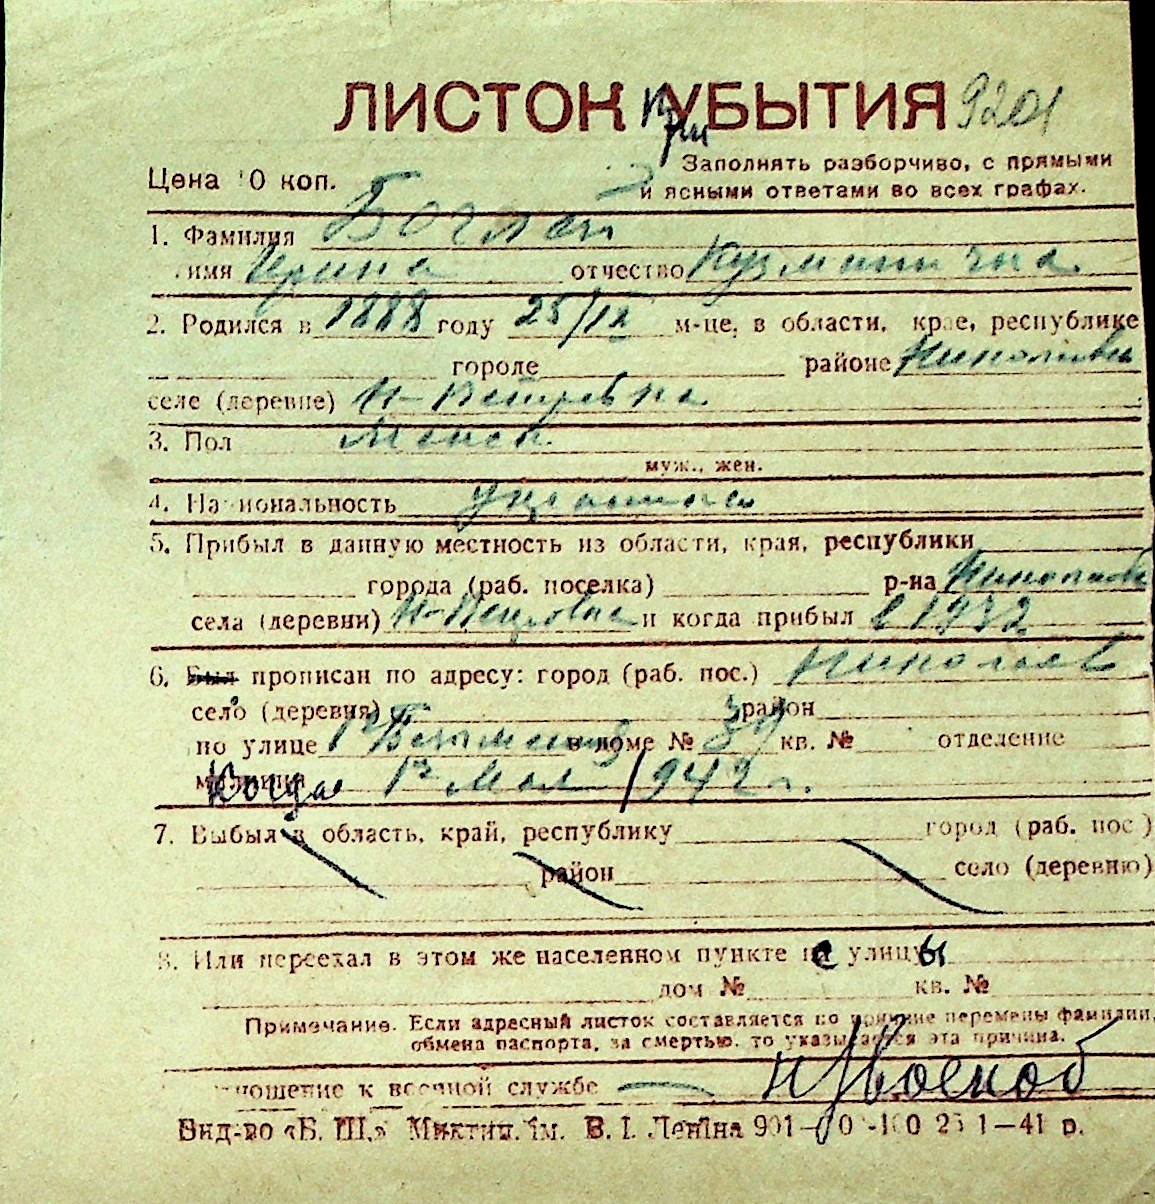 ЛИСТОК при УБЫТИЯ 9201
Цена 10 коп.
Заполнять разборчиво, с прямыми
и ясными ответами во всех графах.
1. Фамилия Боглай
имя Ирина отчество Кузминична
2. Родился в 1888 году 25/IX м-це, в области, крае, республике
городе районе Николаевск
селе (деревне) Н-Петровка
3. Пол женск
муж., жен.
4. Национальность украинка
5. Прибыл в данную местность из области, края, республики
города (раб. поселка) р-на Николаевск
села (деревни) Н-Петровка и когда прибыл в 1932
6. Был прописан по адресу: город (раб. пос.) Николаев
село (деревня) район
по улице 1я Безыменная в доме № 39 кв. № отделение
милиции Когда 1го Мая 1942 г.
7. Выбыл в область, край, республику город (раб. пос.)
район село (деревню)
8. Или переехал в этом же населенном пункте с улицы
дом № кв. №
Примечание. Если адресный листок составляется по причине перемены фамилии,
обмена паспорта, за смертью, то указывается эта причина.
отношение к военной службе
Вид-во «Б. Ш.» Миктип. ім. В. І. Леніна 25 1—41 р.